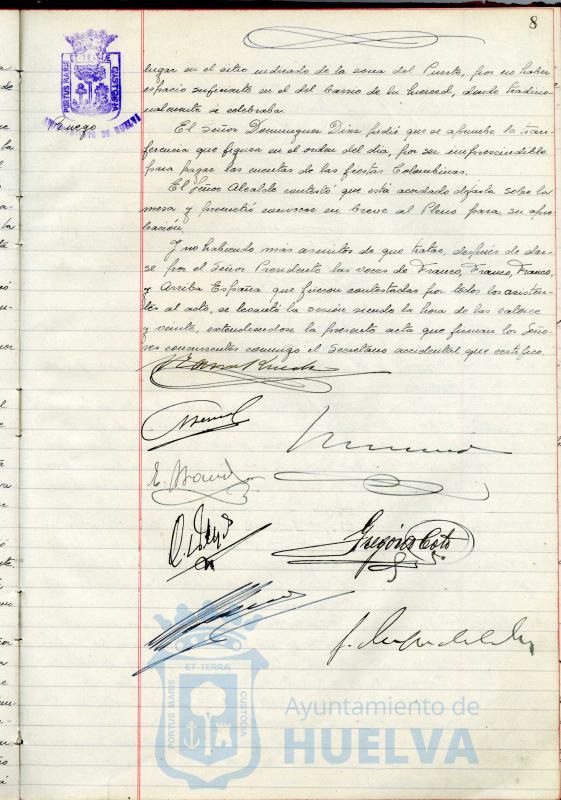 8
PORTUS MARIS ET TERRÆ CUSTODIA
AYUNTAMIENTO DE HUELVA
lugar en el sitio indicado de la zona del Puerto, por no haber
espacio suficiente en el del barrio de la Merced, donde tradicio-
nalmente se celebraba.
Ruego
El Señor Dominguez Diaz pidió que se apruebe la trans-
ferencia que figura en el orden del dia, por ser imprescindible
para pagar las cuentas de las fiestas Colombinas.
El Señor Alcalde contestó que está acordado dejarla sobre la
mesa y prometió convocar en breve al Pleno para su apro-
bación.
Y no habiendo más asuntos de que tratar, después de dar-
se por el Señor Presidente las voces de Franco, Franco, Franco,
y Arriba España que fueron contestadas por todos los asisten-
tes al acto, se levantó la sesión siendo la hora de las catorce
y veinte, extendiendose la presente acta que firman los Seño-
res concurrentes conmigo el Secretario accidental que certifico.
Gregorio Coto
PORTUS MARIS ET TERRÆ CUSTODIA
Ayuntamiento de
HUELVA